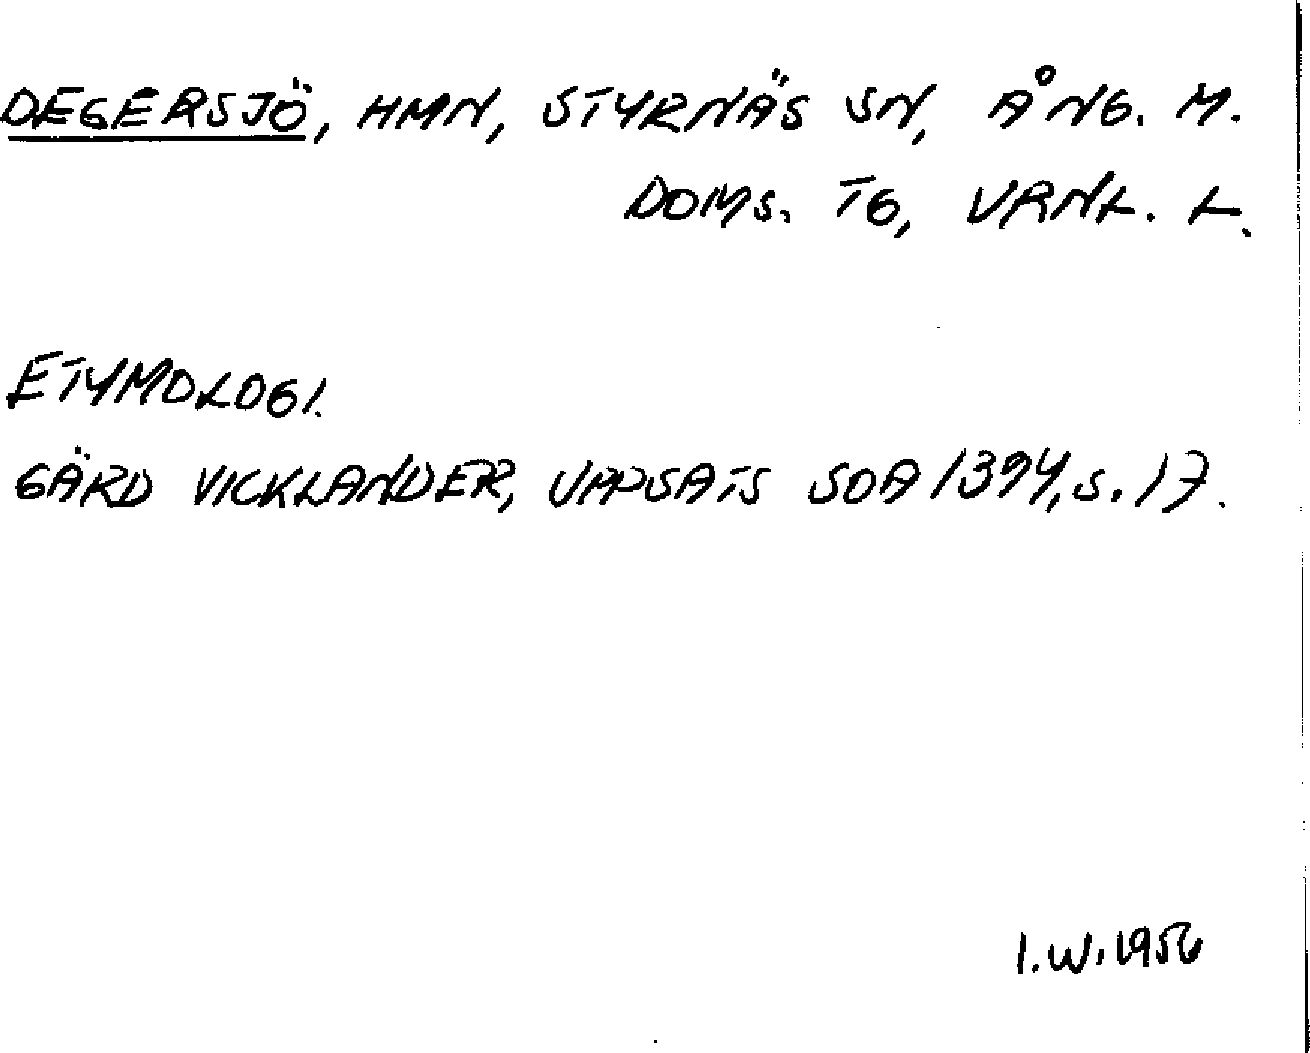 DEGERSJÖ, HMN, STYRNÄS SN, ÅNG. M.
DOMS. TG, VRNL. L.
ETYMOLOGI.
GÄRD VICKLANDER, UPPSATS SOA 1394, S. 17.
I.W. 1956